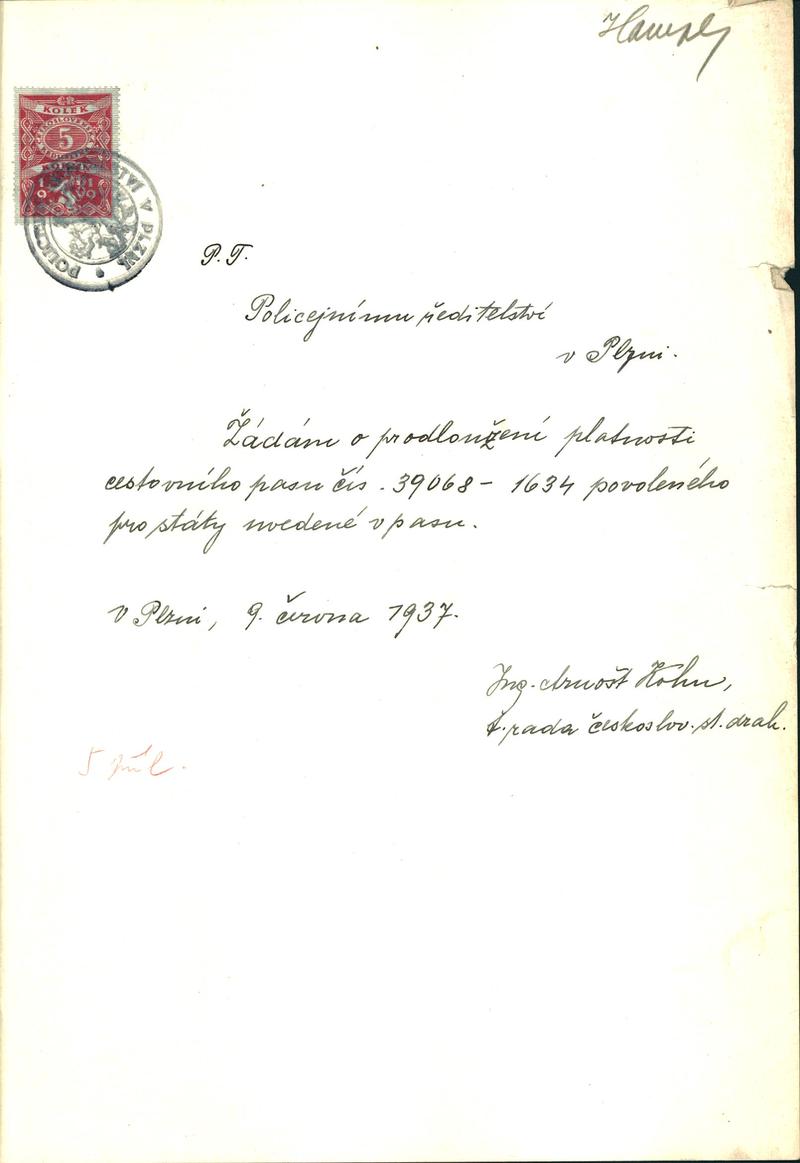 Hampl
ČR
KOLEK
ČESKOSLOVENSKÁ
5
19 19
POLICEJNÍ ŘEDITELSTVÍ V PLZNI
P. T.
Policejnímu ředitelství
v Plzni.
Žádám o prodloužení platnosti
cestovního pasu čís. 39068 - 1634 povoleného
pro státy uvedené v pasu.
V Plzni, 9. června 1937.
Ing. Arnošt Kohn,
t. rada českoslov. st. drah.
5